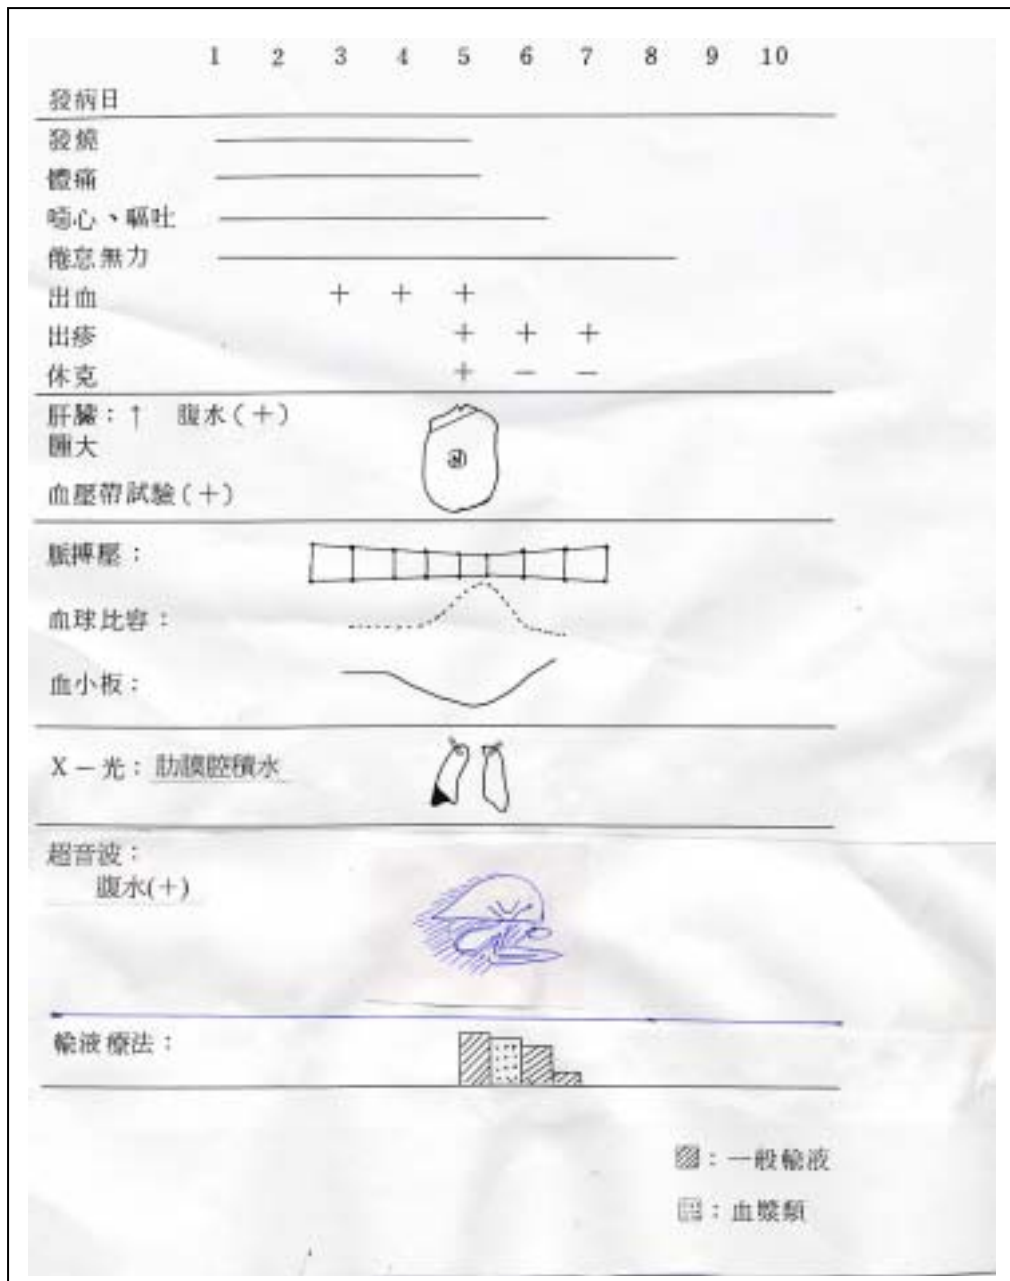 1 2 3 4 5 6 7 8 9 10
發病日
發燒
體痛
噁心、嘔吐
倦怠無力
出血 + + +
出疹 + + +
休克 + − −
肝臟：↑ 腹水(+)
腫大
血壓帶試驗(+)
脈搏壓：
血球比容：
血小板：
X－光：肋膜腔積水
超音波：
腹水(+)
輸液療法：
：一般輸液
：血漿類